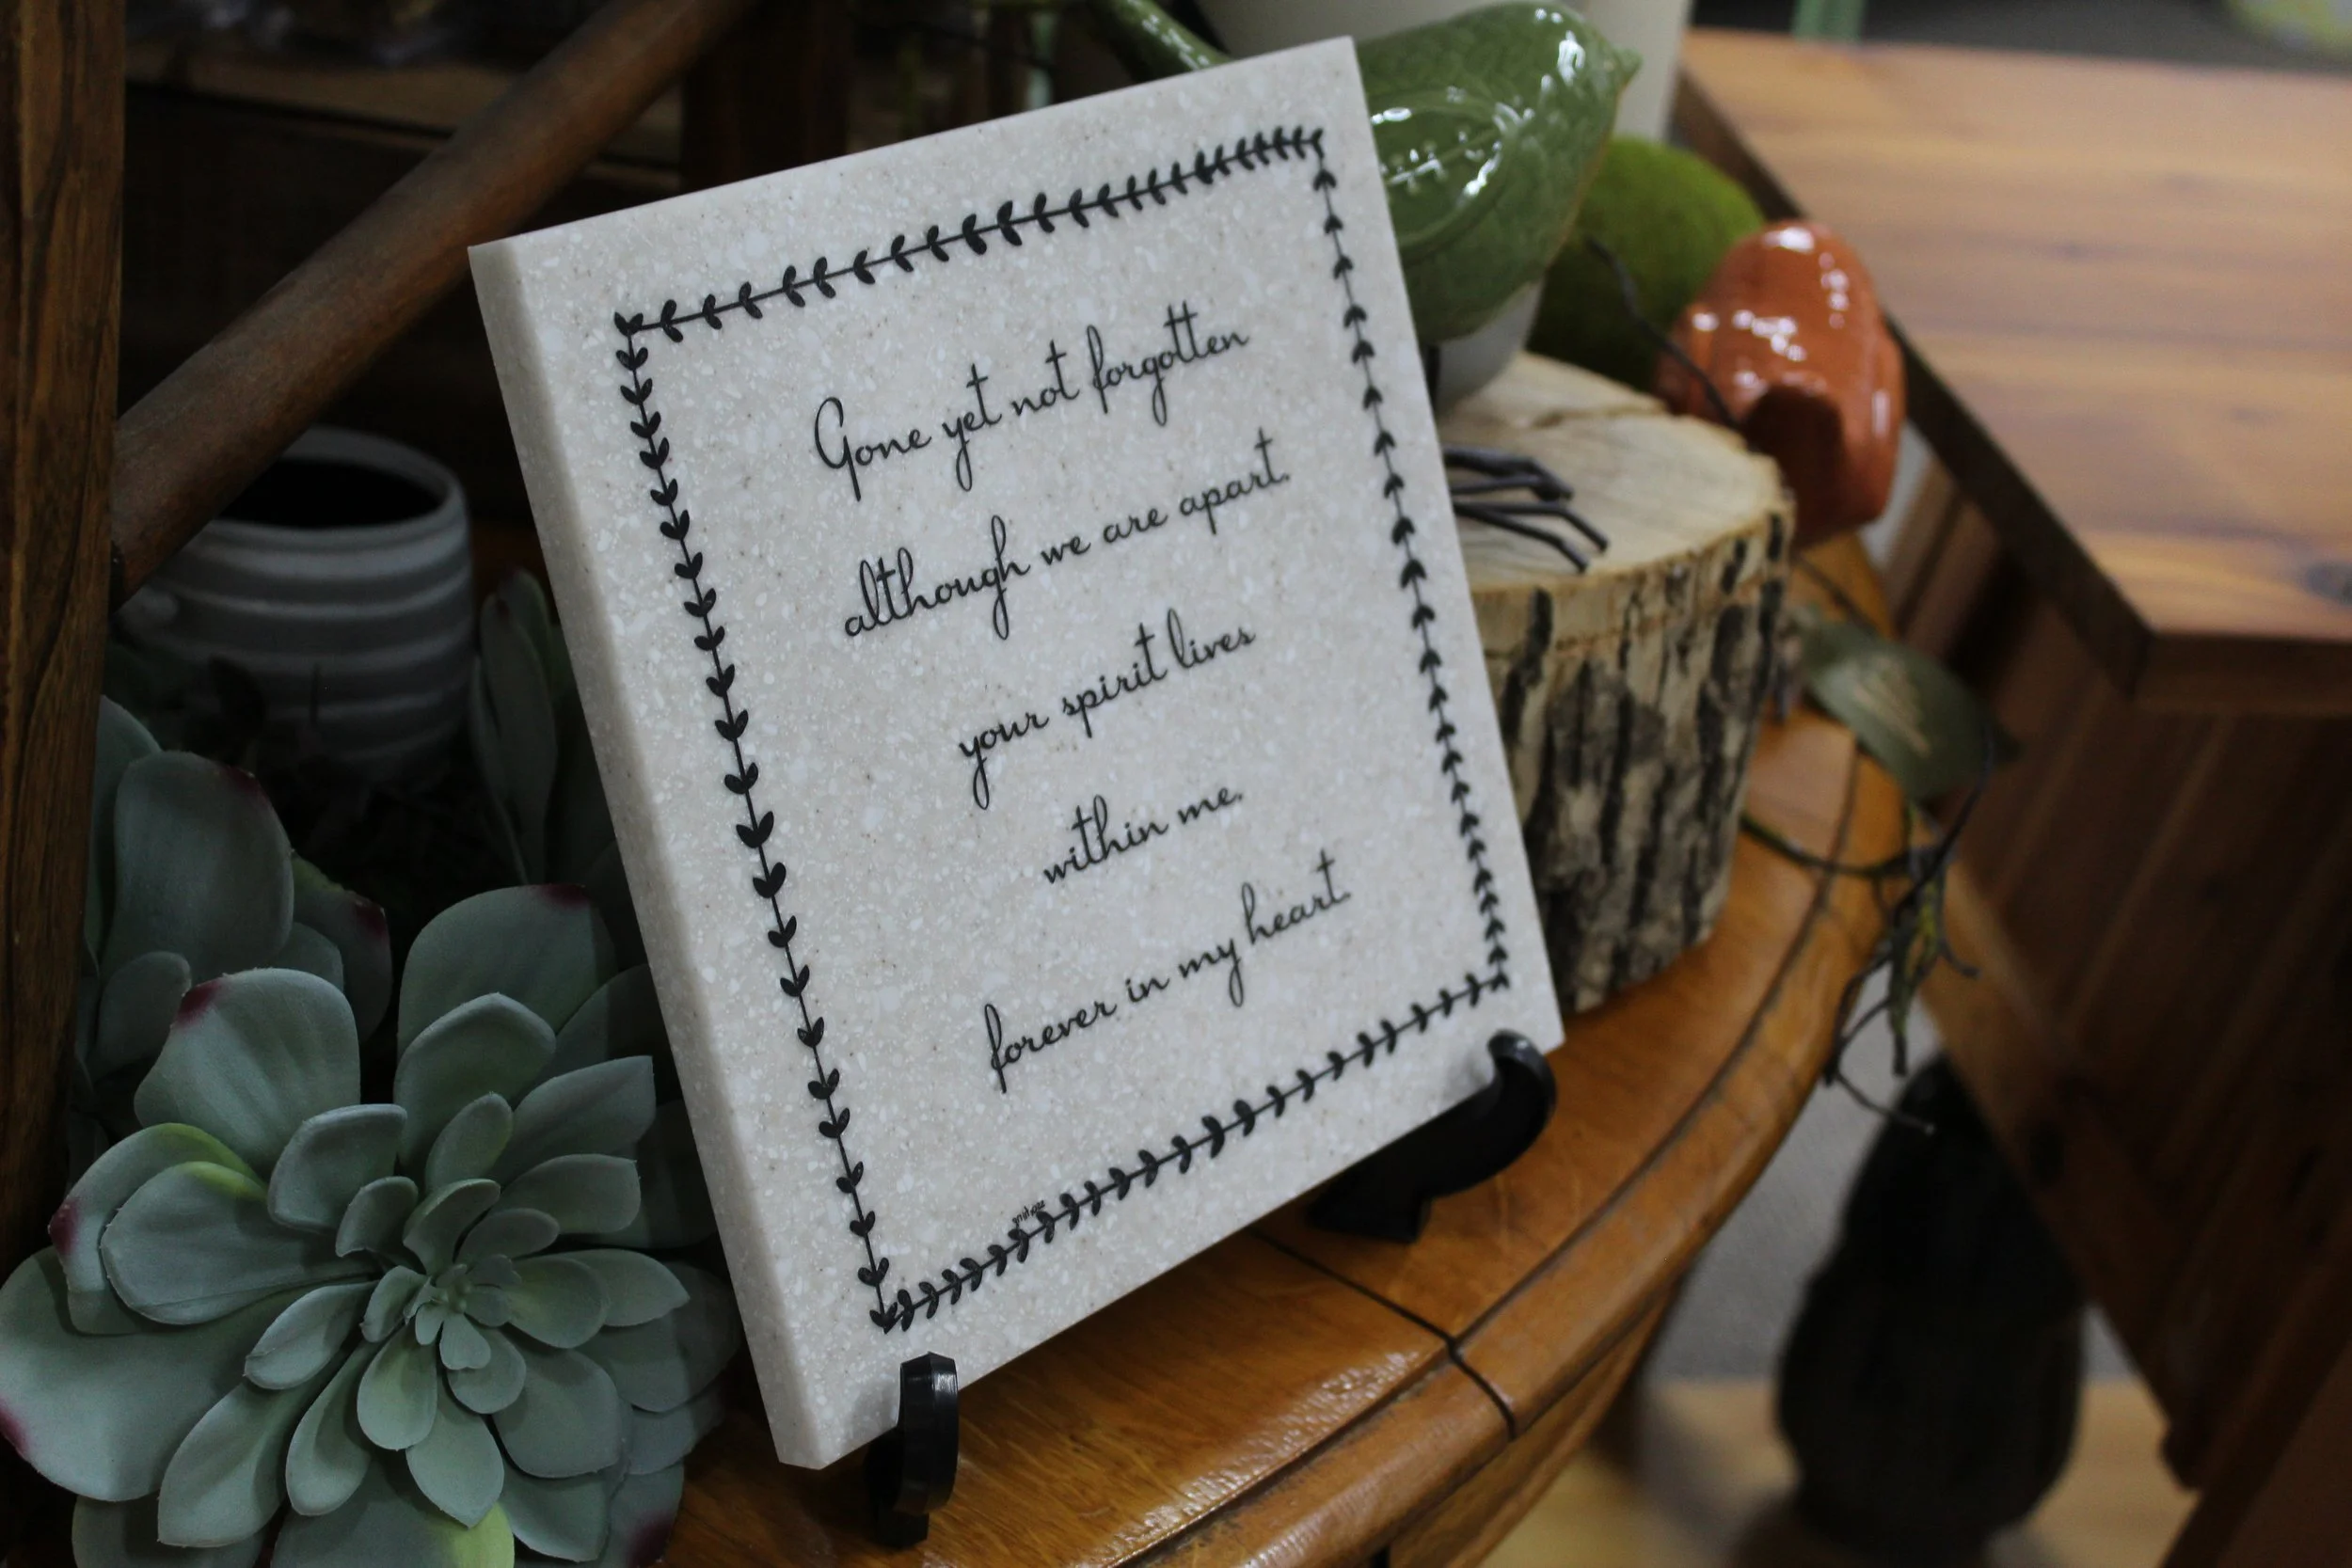 Gone yet not forgotten
although we are apart.
your spirit lives
within me.
forever in my heart.